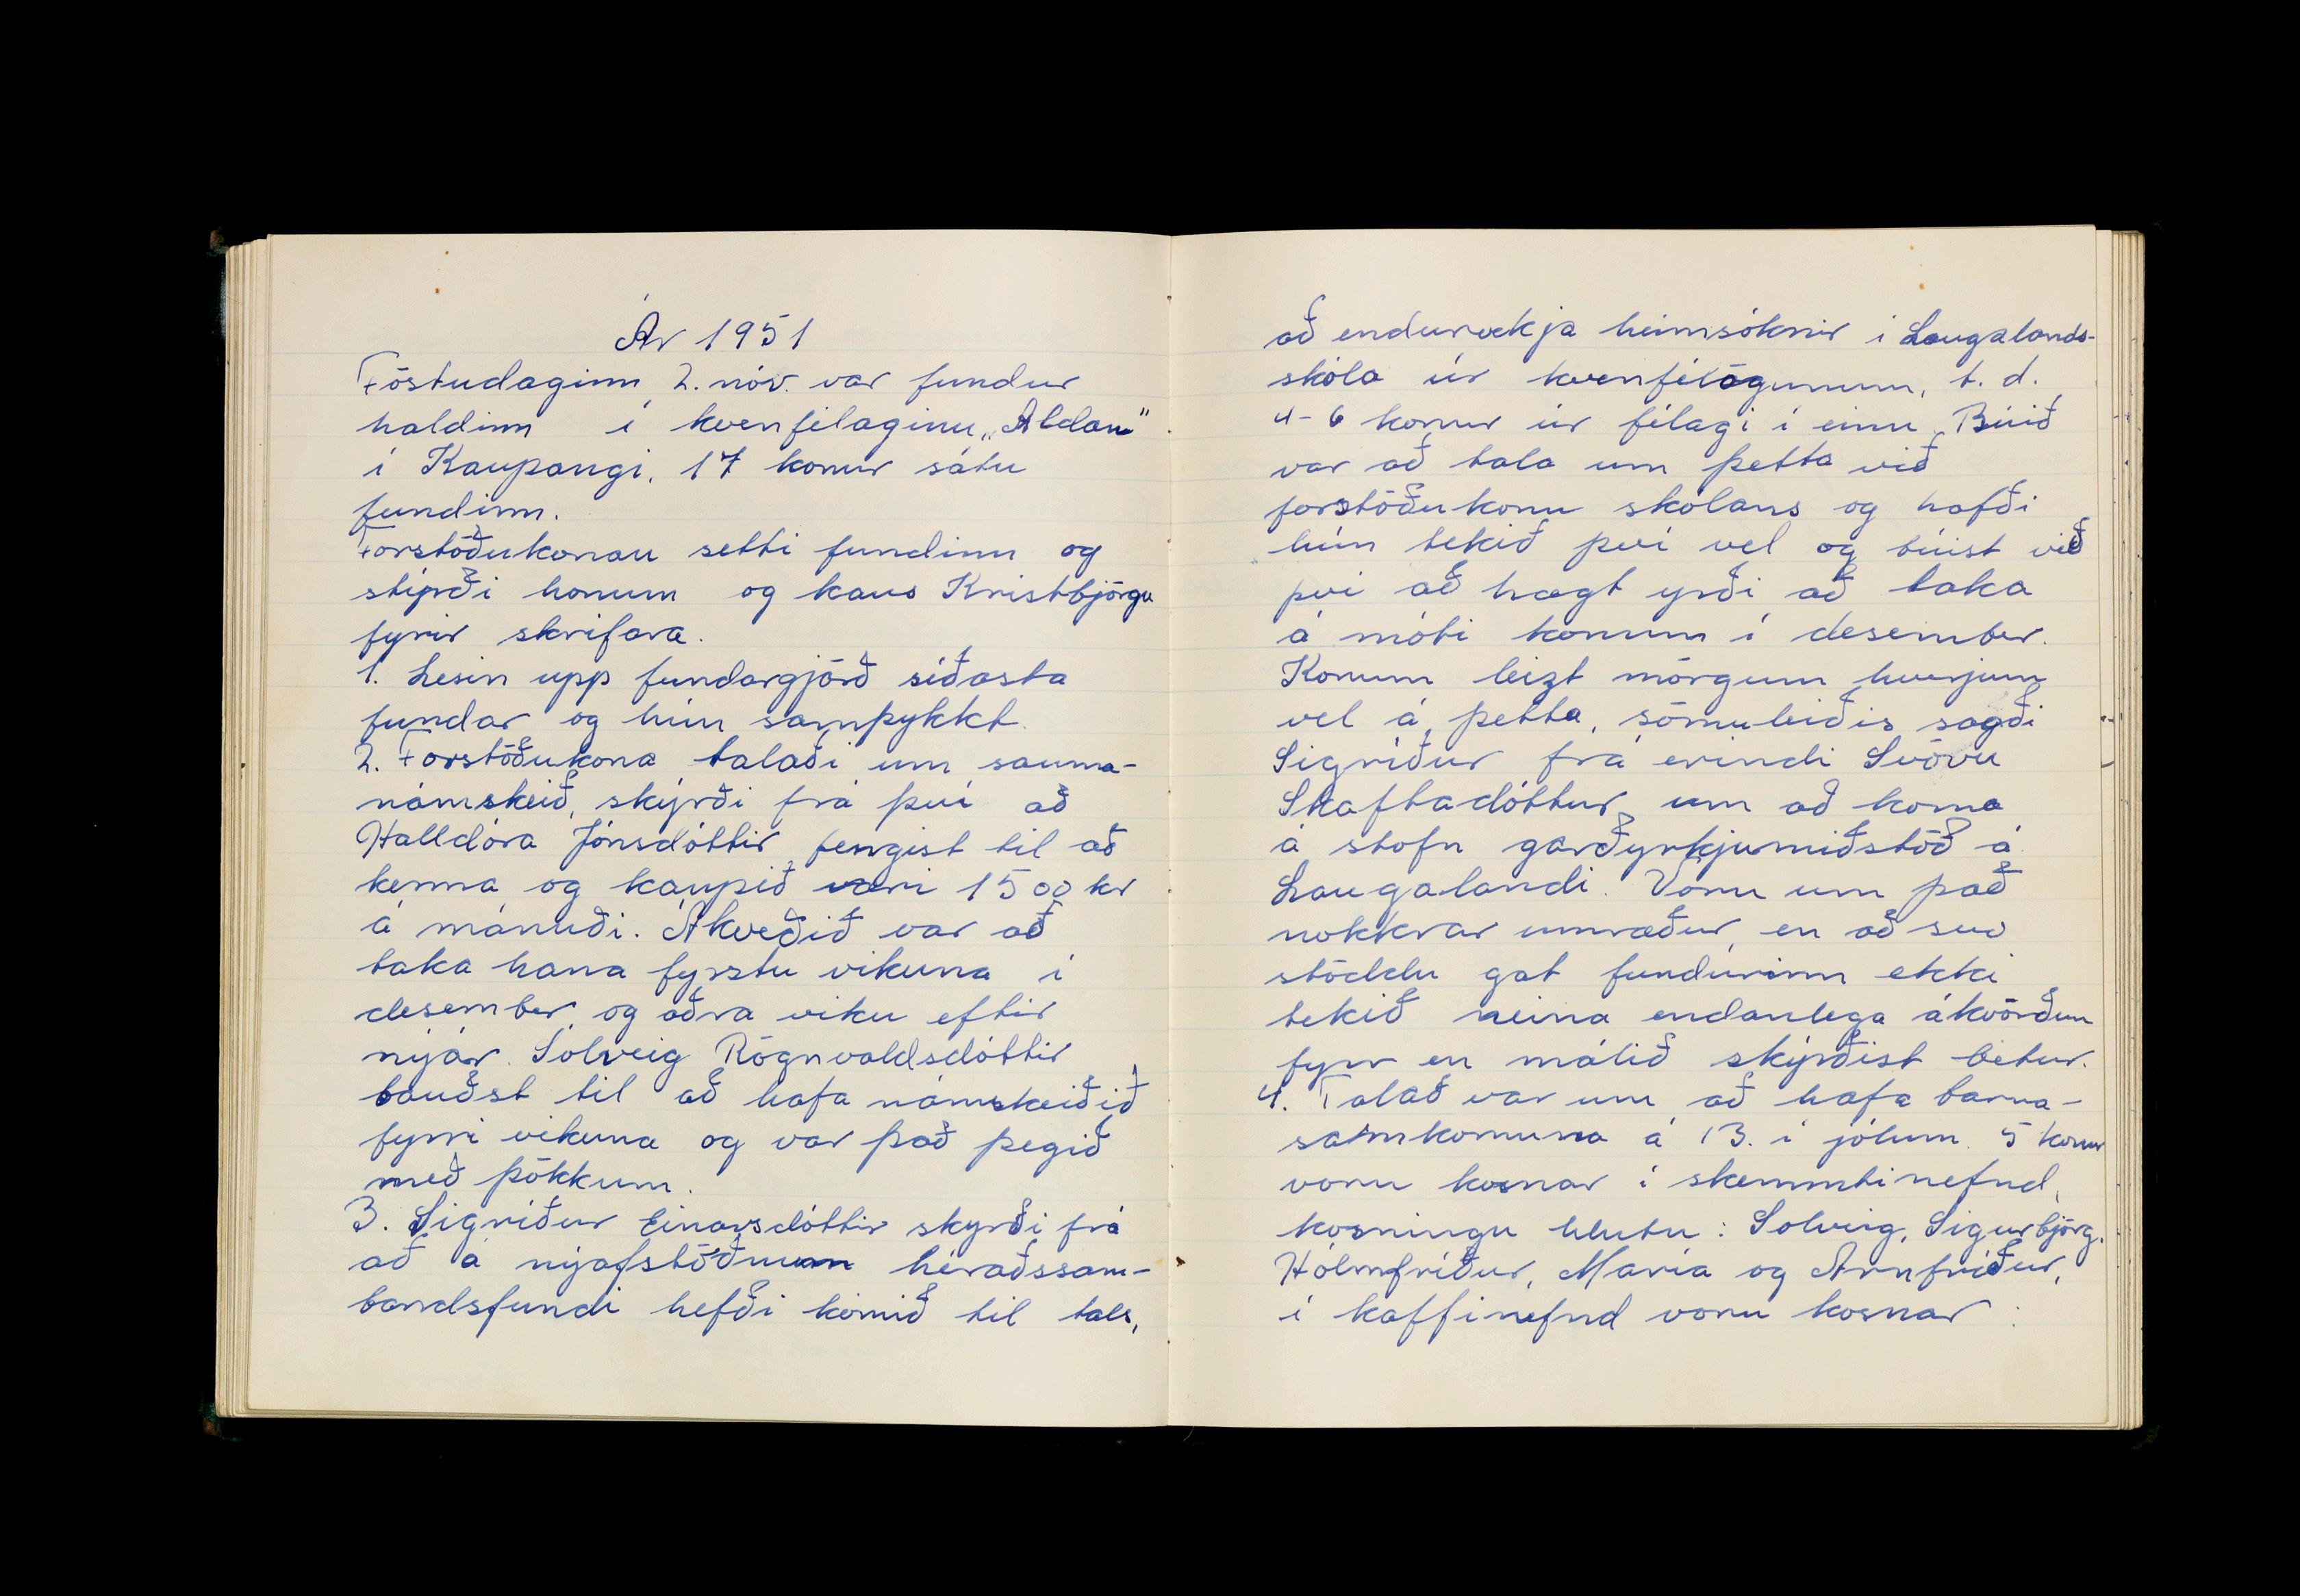 Ár 1951
Föstudaginn 2. nóv. var fundur
haldinn í kvenfélaginu „Aldan"
í Kaupangi. 17 konur sátu
fundinn.
Forstöðukonan setti fundinn og
stýrði honum og kaus Kristbjörgu
fyrir skrifara.
1. Lesin upp fundargjörð síðasta
fundar og hún samþykkt.
2. Forstöðukona talaði um sauma-
námskeið, skýrði frá því að
Halldóra Jónsdóttir fengist til að
kenna og kaupið væri 1500 kr
á mánuði. Ákveðið var að
taka hana fyrstu vikuna í
desember og aðra viku eftir
nýár. Solveig Rögnvaldsdóttir
bauðst til að hafa námskeiðið
fyrri vikuna og var það þegið
með þökkum.
3. Sigríður Einarsdóttir skyrði frá
að á nýafstöðnum héraðssam-
bandsfundi hefði komið til tals,
að endurvekja heimsóknir í Laugalands-
skóla úr kvenfélögunum, t. d.
4-6 konur úr félagi í einu. Búið
var að tala um þetta við
forstöðukonu skólans og hafði
hún tekið því vel og búist við
því að hægt yrði að taka
á móti konum í desember.
Konum leizt mörgum hverjum
vel á þetta, sömuleiðis sagði
Sigríður frá erindi Svövu
Skaftadóttur um að koma
á stofn garðyrkjumiðstöð á
Laugalandi. Voru um það
nokkrar umræður, en að svo
stöddu gat fundurinn ekki
tekið neina endanlega ákvörðun
fyrr en málið skýrðist betur.
4. Talað var um að hafa barna-
samkomuna á 13. í jólum. 5 konur
voru kosnar í skemmtinefnd,
kosningu hlutu: Solveig, Sigurbjörg,
Hólmfríður, María og Arnfríður,
í kaffinefnd voru kosnar :